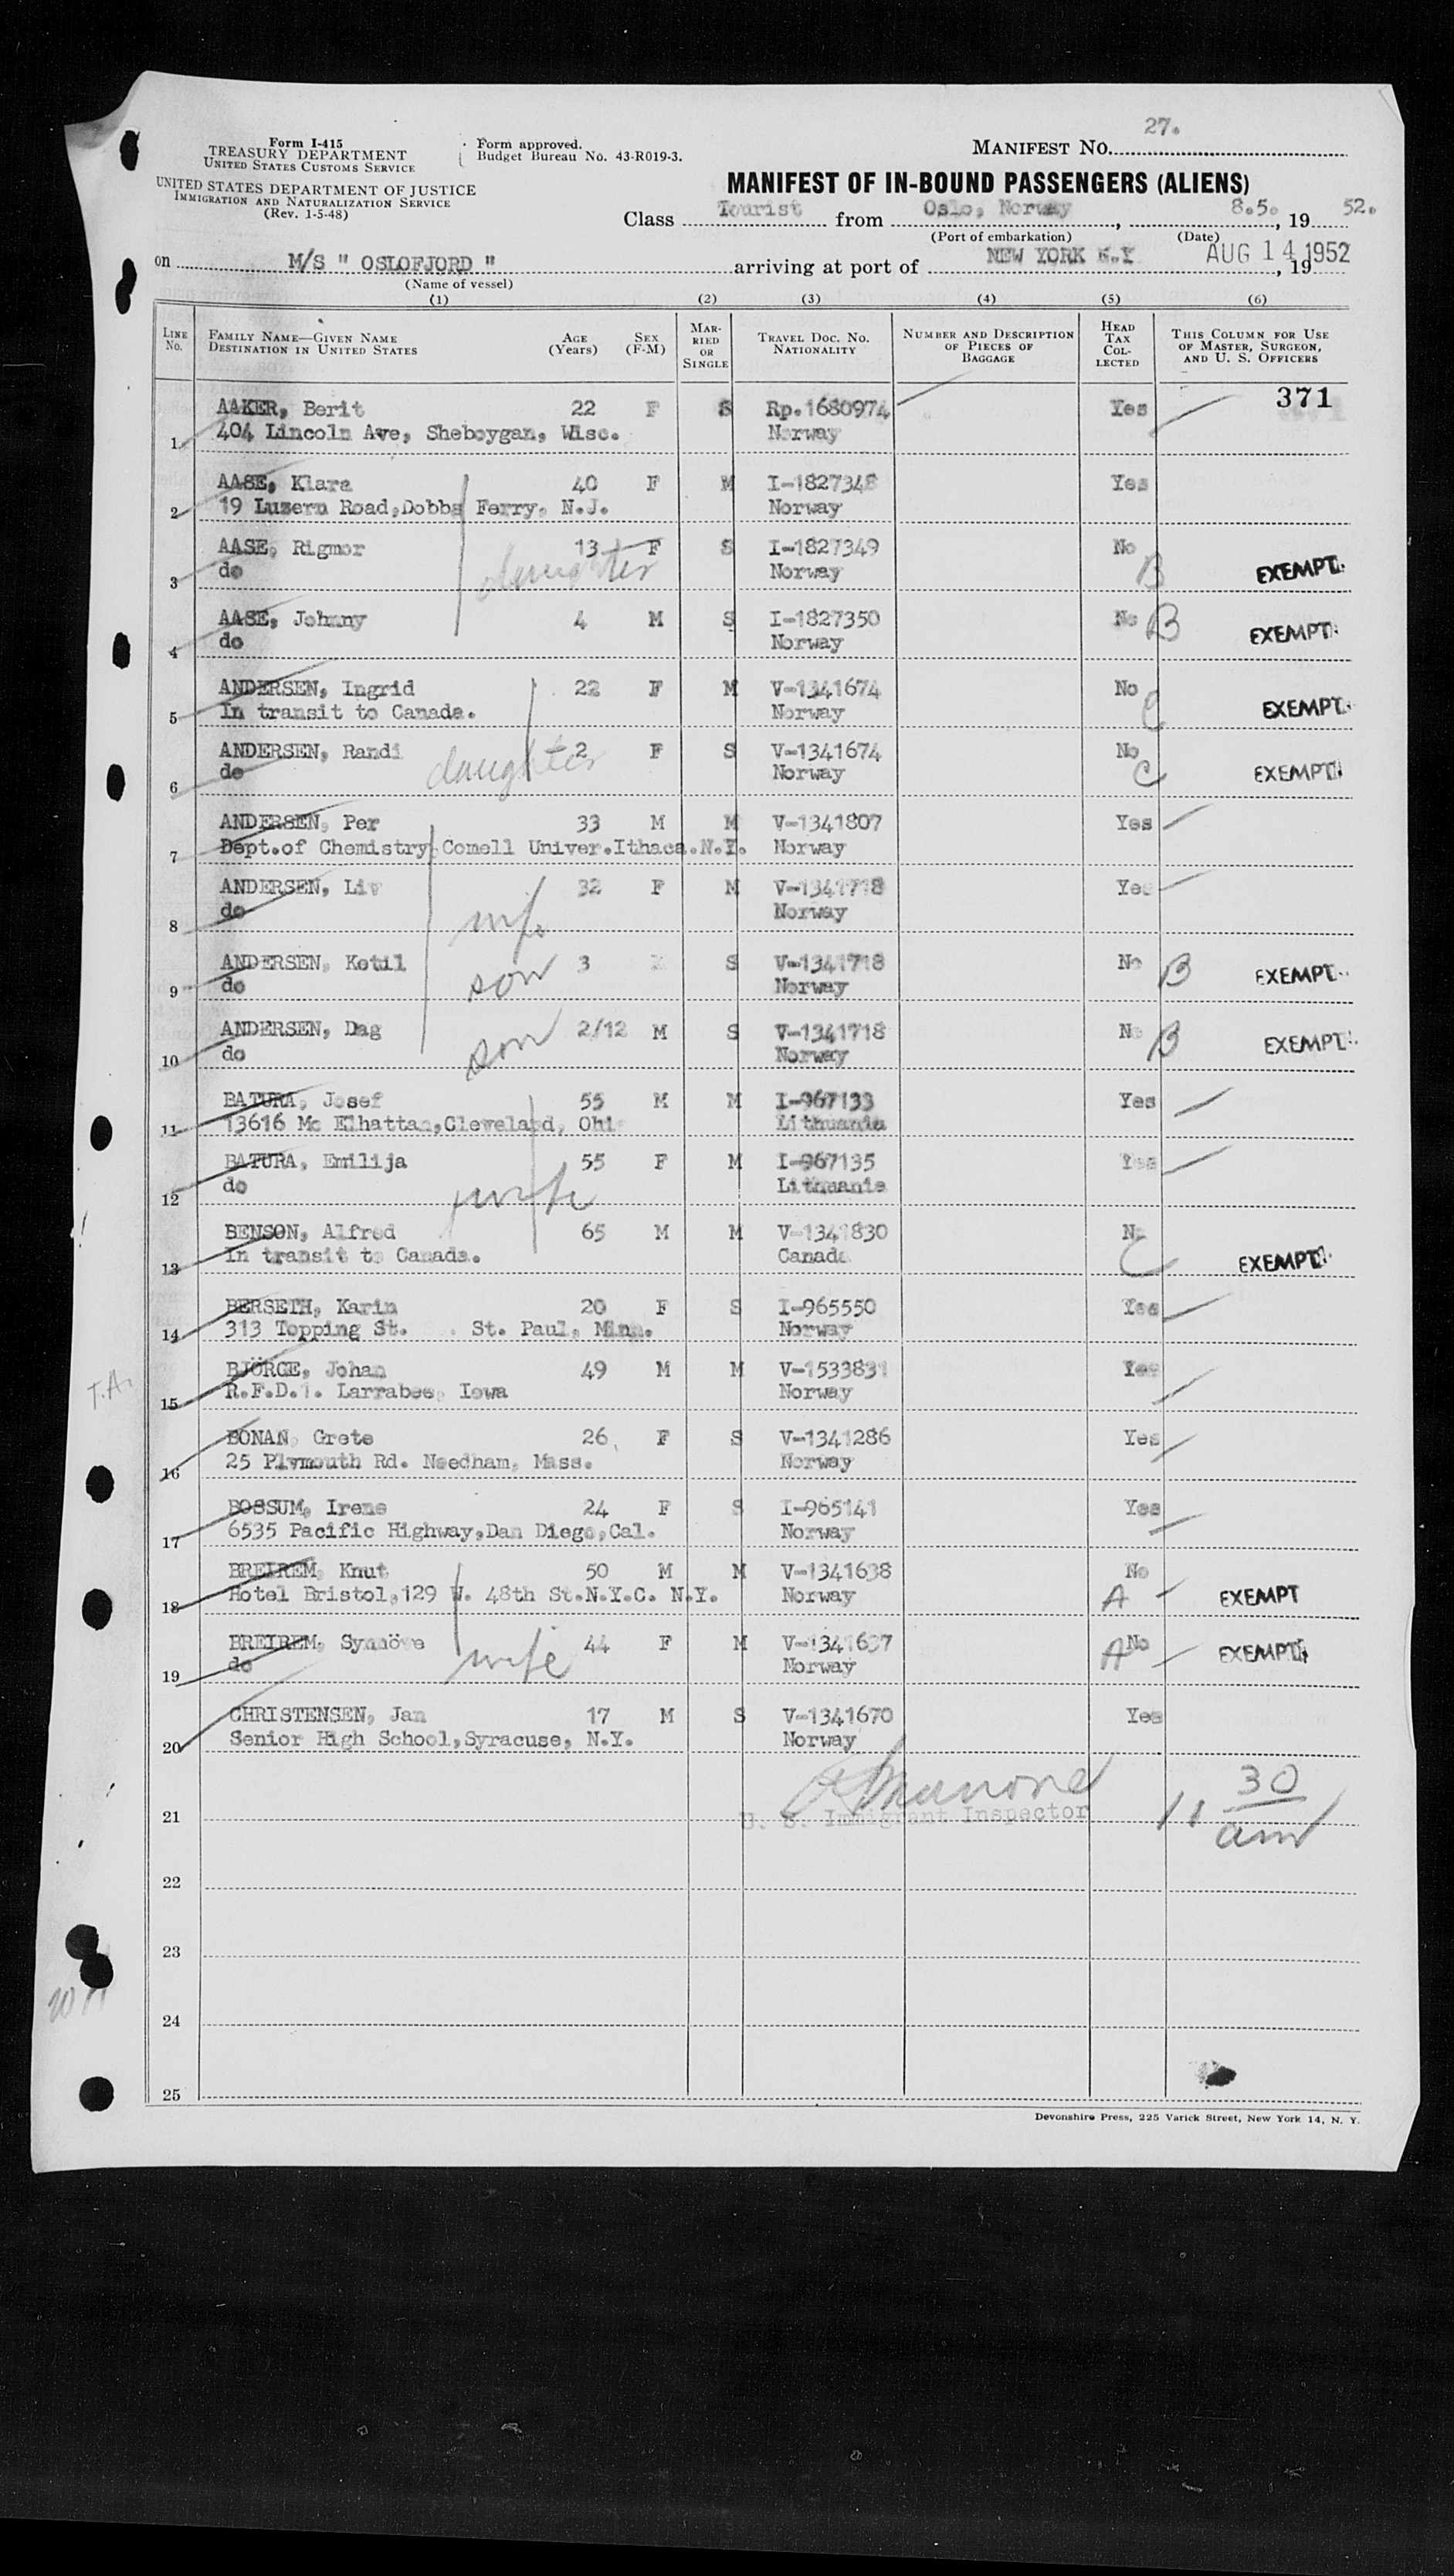 27.
Form I-415
TREASURY DEPARTMENT
UNITED STATES CUSTOMS SERVICE
Form approved.
Budget Bureau No. 43-R019-3.
MANIFEST NO.
UNITED STATES DEPARTMENT OF JUSTICE
IMMIGRATION AND NATURALIZATION SERVICE
(Rev. 1-5-48)
MANIFEST OF IN-BOUND PASSENGERS (ALIENS)
Class Tourist from Oslo, Norway, 8.5., 19 52.
(Port of embarkation) (Date)
on M/S " OSLOFJORD " arriving at port of NEW YORK N.Y AUG 14 1952, 19
(Name of vessel)
(1) (2) (3) (4) (5) (6)
LINE No. FAMILY NAME—GIVEN NAME DESTINATION IN UNITED STATES AGE (Years) SEX (F-M) MARRIED OR SINGLE TRAVEL DOC. NO. NATIONALITY NUMBER AND DESCRIPTION OF PIECES OF BAGGAGE HEAD TAX COLLECTED THIS COLUMN FOR USE OF MASTER, SURGEON, AND U. S. OFFICERS
371
AAKER, Berit 22 F S Rp.1680974 Yes
1 404 Lincoln Ave, Sheboygan, Wisc. Norway
AASE, Klara 40 F M I-1827348 Yes
2 19 Luzern Road,Dobbs Ferry, N.J. Norway
AASE, Rigmor 13 F S I-1827349 No
3 do daughter Norway B EXEMPT
AASE, Johnny 4 M S I-1827350 No B
4 do Norway EXEMPT
ANDERSEN, Ingrid 22 F M V-1341674 No
5 In transit to Canada. Norway C EXEMPT
ANDERSEN, Randi 2 F S V-1341674 No
6 do daughter Norway C EXEMPT
ANDERSEN, Per 33 M M V-1341807 Yes
7 Dept.of Chemistry,Comell Univer.Ithaca.N.Y. Norway
ANDERSEN, Liv 32 F M V-1341718 Yes
8 do wife Norway
ANDERSEN, Ketil 3 S V-1341718 No B
9 do son Norway EXEMPT
ANDERSEN, Dag 2/12 M S V-1341718 No B
10 do son Norway EXEMPT
BATURA, Josef 55 M M I-967133 Yes
11 13616 Mc Elhattan,Cleveland, Ohi Lithuania
BATURA, Emilija 55 F M I-967135 Yes
12 do wife Lithuania
BENSON, Alfred 65 M M V-1341830 No
13 In transit to Canada. Canada C EXEMPT
BERSETH, Karin 20 F S I-965550 Yes
14 313 Topping St. St. Paul, Minn. Norway
BJÖRGE, Johan 49 M M V-1533831 Yes
T.A.
15 R.F.D.1. Larrabee, Iowa Norway
BONAN, Grete 26 F S V-1341286 Yes
16 25 Plymouth Rd. Needham, Mass. Norway
BOSSUM, Irene 24 F S I-965141 Yes
17 6535 Pacific Highway,Dan Diego,Cal. Norway
BREIREM, Knut 50 M M V-1341638 No
18 Hotel Bristol,129 W. 48th St.N.Y.C. N.Y. Norway A EXEMPT
BREIREM, Synnöve 44 F M V-1341637 No
19 do wife Norway A EXEMPT
CHRISTENSEN, Jan 17 M S V-1341670 Yes
20 Senior High School,Syracuse, N.Y. Norway
11 30 am
21 U. S. Immigrant Inspector
22
23
24
25
Devonshire Press, 225 Varick Street, New York 14, N. Y.